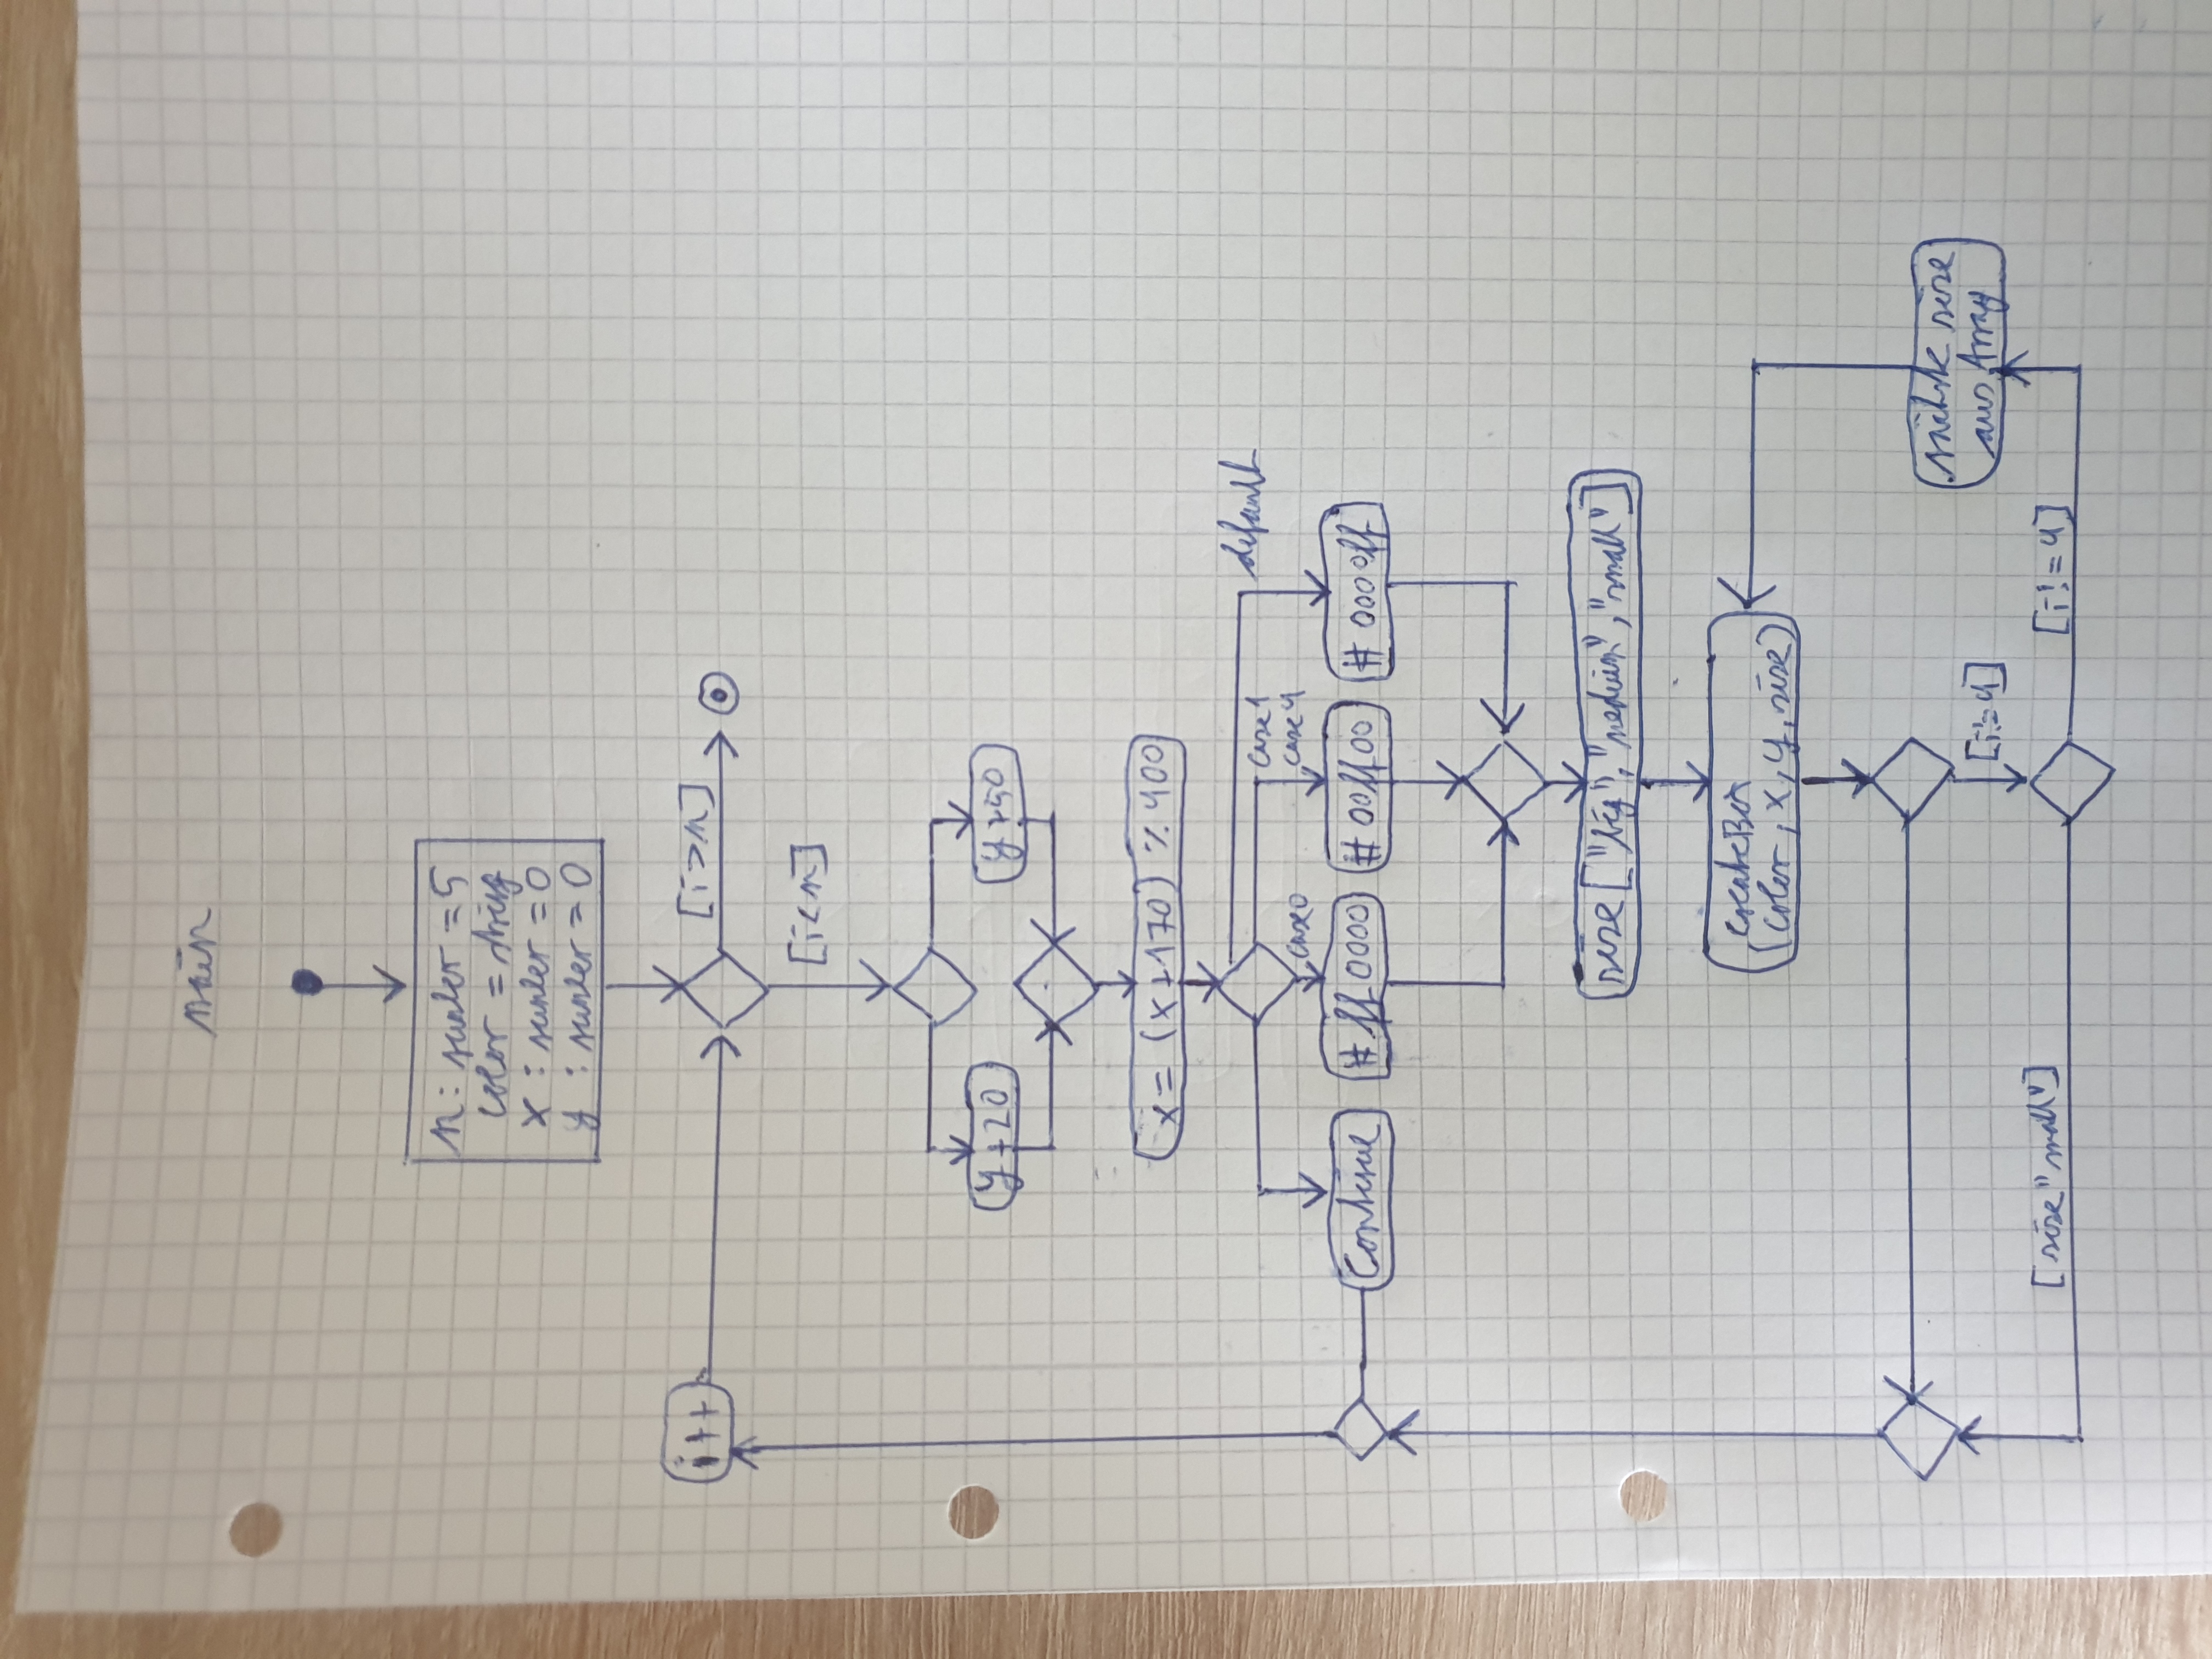 main
n: number = 5
color = string
x : number = 0
y : number = 0
i++
[i>n]
[i<n]
y+20
y+50
x = (x+170) % 400
default
case1
case4
case0
Continue
#ff0000
#00ff00
#0000ff
size ["big", "medium", "small"]
createBox
(color, x, y, size)
nächste size
aus Array
[i!=4]
[size "small"]
[i!=4]